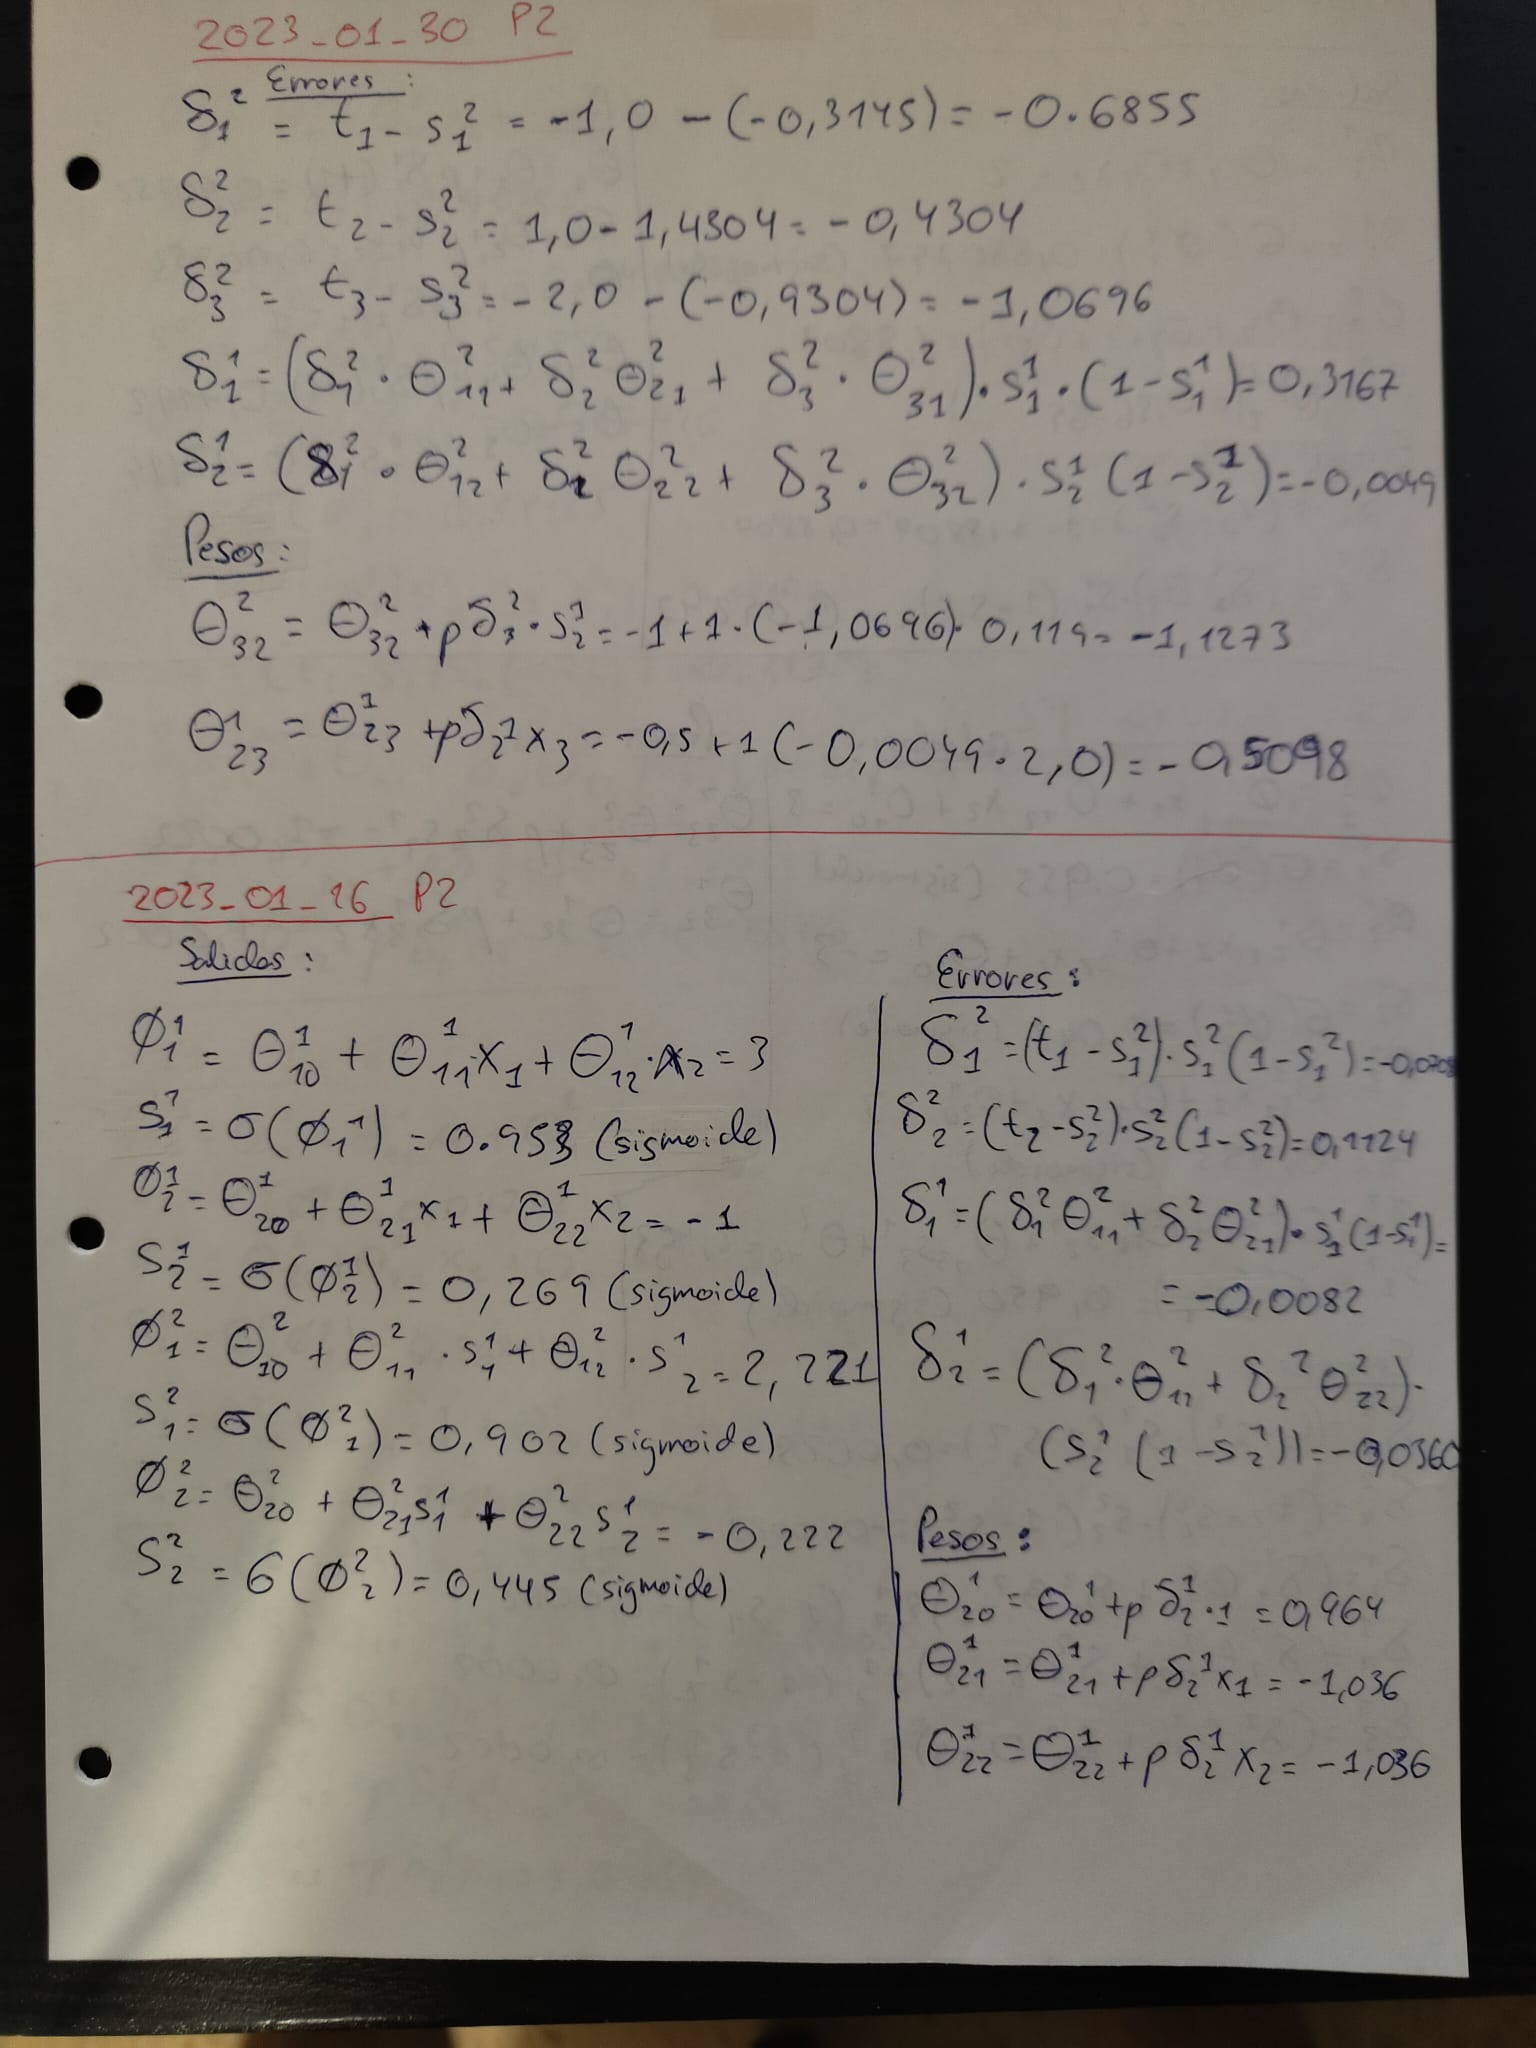 2023_01_30 P2
Errores:
δ₁² = t₁ - s₁² = -1,0 - (-0,3145) = -0.6855
δ₂² = t₂ - s₂² = 1,0 - 1,4304 = -0,4304
δ₃² = t₃ - s₃² = -2,0 - (-0,9304) = -1,0696
δ₁¹ = (δ₁² · Θ₁₁² + δ₂² Θ₂₁² + δ₃² · Θ₃₁²) · s₁¹ · (1 - s₁¹) = 0,3167
δ₂¹ = (δ₁² · Θ₁₂² + δ₂² Θ₂₂² + δ₃² · Θ₃₂²) · s₂¹ (1 - s₂¹) = -0,0049
Pesos:
Θ₃₂² = Θ₃₂² + ρ δ₃² · s₂¹ = -1 + 1 · (-1,0696) · 0,119 = -1,1273
Θ₂₃¹ = Θ₂₃¹ + ρ δ₂¹ x₃ = -0,5 + 1 (-0,0049 · 2,0) = -0,5098
2023_01_16 P2
Salidas:
φ₁¹ = Θ₁₀¹ + Θ₁₁¹ x₁ + Θ₁₂¹ · x₂ = 3
s₁¹ = σ(φ₁¹) = 0.953 (sigmoide)
φ₂¹ = Θ₂₀¹ + Θ₂₁¹ x₁ + Θ₂₂¹ x₂ = -1
s₂¹ = σ(φ₂¹) = 0,269 (sigmoide)
φ₁² = Θ₁₀² + Θ₁₁² · s₁¹ + Θ₁₂² · s₂¹ = 2,221
s₁² = σ(φ₁²) = 0,902 (sigmoide)
φ₂² = Θ₂₀² + Θ₂₁² s₁¹ + Θ₂₂² s₂¹ = -0,222
s₂² = σ(φ₂²) = 0,445 (sigmoide)
Errores:
δ₁² = (t₁ - s₁²) · s₁² (1 - s₁²) =
δ₂² = (t₂ - s₂²) · s₂² (1 - s₂²) = 0,1124
δ₁¹ = (δ₁² Θ₁₁² + δ₂² Θ₂₁²) · s₁¹ (1 - s₁¹) =
= -0,0082
δ₂¹ = (δ₁² · Θ₁₂² + δ₂² Θ₂₂²) ·
(s₂¹ (1 - s₂¹)) = -0,0360
Pesos:
Θ₂₀¹ = Θ₂₀¹ + ρ δ₂¹ · 1 = 0,964
Θ₂₁¹ = Θ₂₁¹ + ρ δ₂¹ x₁ = -1,036
Θ₂₂¹ = Θ₂₂¹ + ρ δ₂¹ x₂ = -1,036